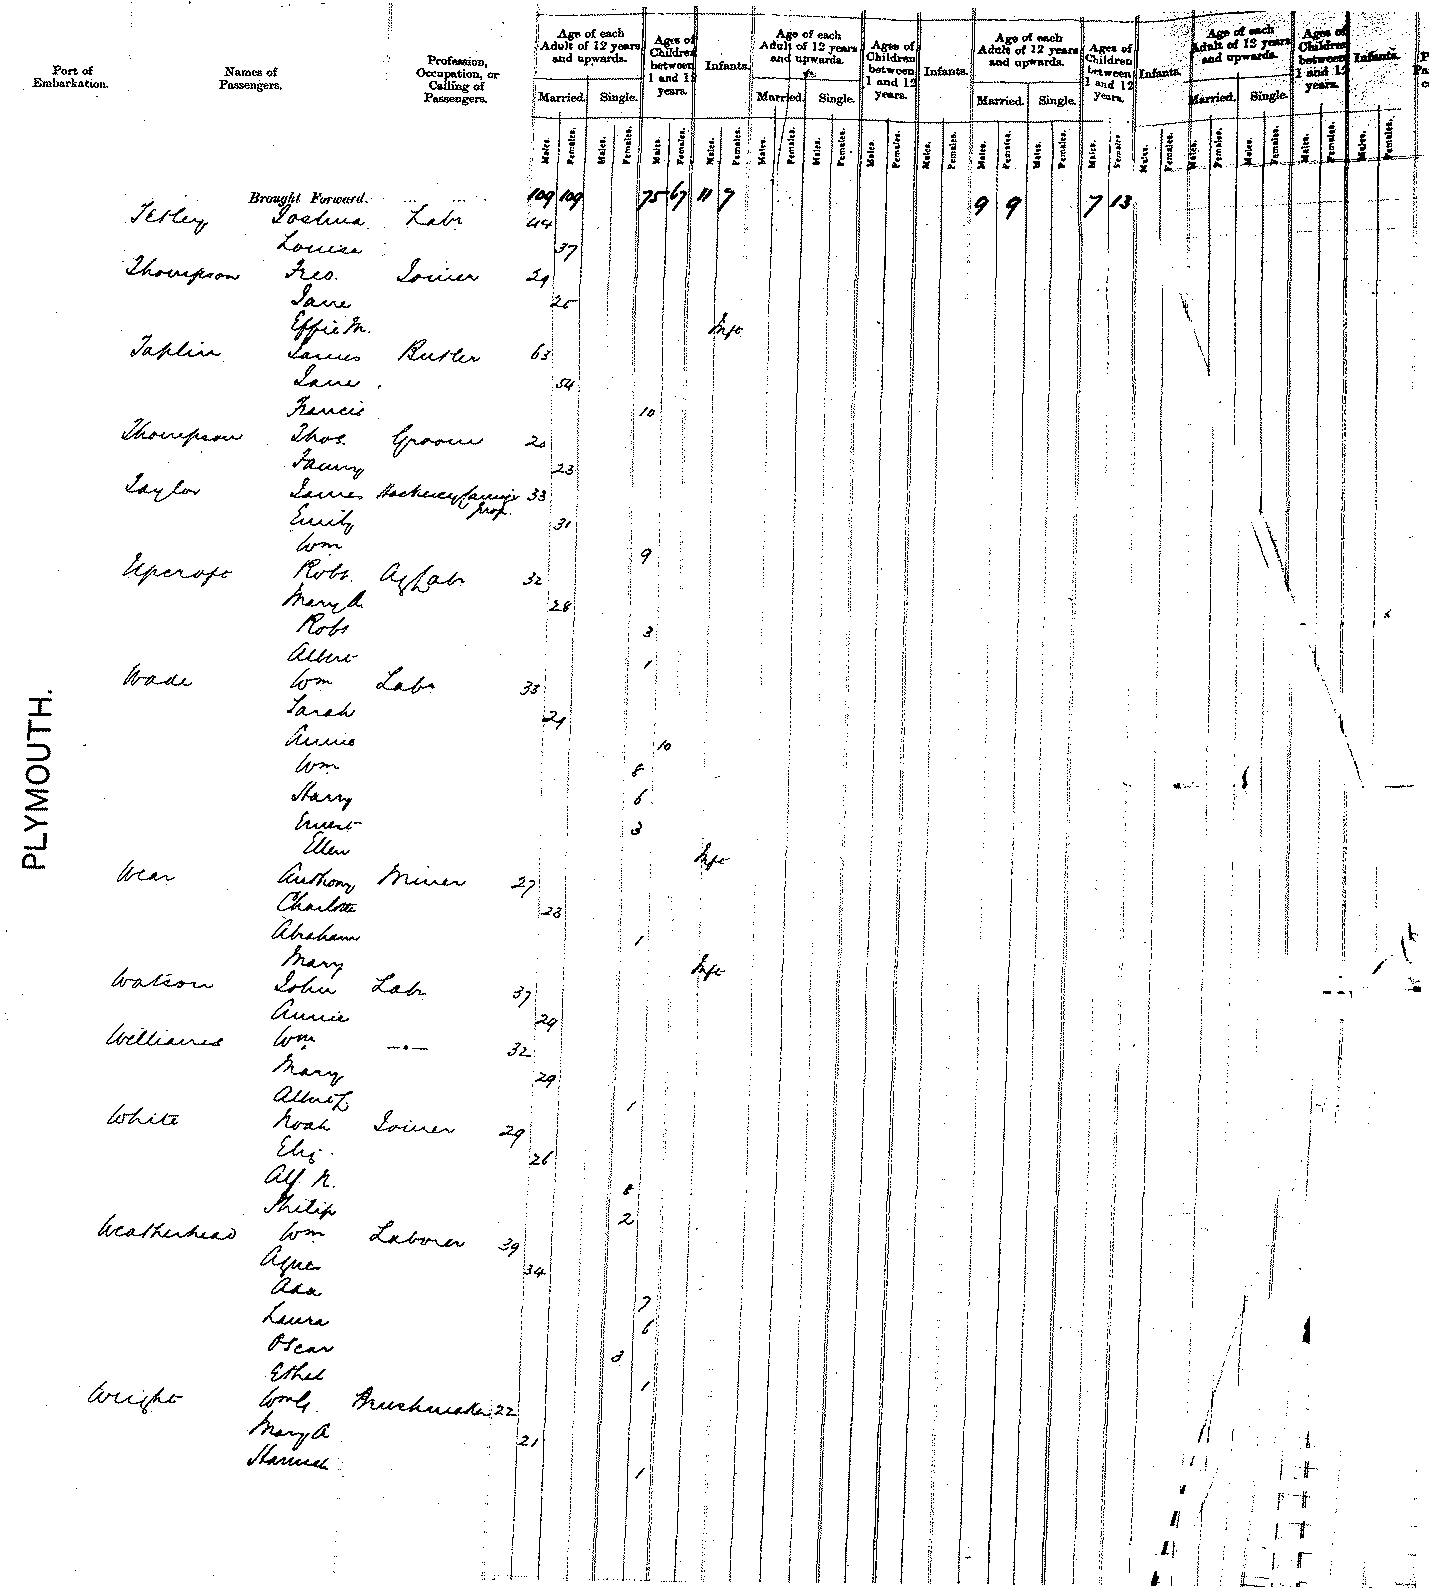 Port of Embarkation.
Names of Passengers.
Profession, Occupation, or Calling of Passengers.
Age of each Adult of 12 years and upwards. Ages of Children between 1 and 12 years. Infants. Age of each Adult of 12 years and upwards. Ages of Children between 1 and 12 years. Infants. Age of each Adult of 12 years and upwards. Ages of Children between 1 and 12 years. Infants. Age of each Adult of 12 years and upwards. Ages of Children between 1 and 12 years. Infants.
Married. Single. Married. Single. Married. Single. Married. Single.
Males. Females. Males. Females. Males. Females. Males. Females. Males. Females. Males. Females. Males. Females. Males. Females. Males. Females. Males. Females. Males. Females. Males. Females. Males. Females. Males. Females. Males. Females. Males. Females.
PLYMOUTH.
Brought Forward. 109 109 75 67 11 7 9 9 7 13
Tetley Joshua Labr 44
Louisa 37
Thompson Geo. Joiner 29
Jane 25
Effie M. Inft
Taplin James Butler 63
Jane 54
Francis 10
Thompson Thos. Groom 20
Fanny 23
Taylor James Hackney Carriage Prop. 33
Emily 31
Wm 9
Upcroft Robt. Ag Lab 32
Mary A 28
Robt 3
Albert 1
Wade Wm Labr 33
Sarah 29
Annie 10
Wm 8
Harry 6
Ernest 3
Ellen Inft
Wear Anthony Miner 27
Charlotte 28
Abraham 1
Mary Inft
Watson John Labr 37
Annie 29
Williams Wm —"— 32
Mary 29
Albert L 1
White Noah Joiner 29
Eliz. 26
Alf N. 8
Philip 2
Weatherhead Wm Laborer 39
Agnes 34
Ada 7
Laura 6
Oscar 3
Ethel 1
Wright Wm G. Brushmaker 22
Mary A 21
Hannah 1